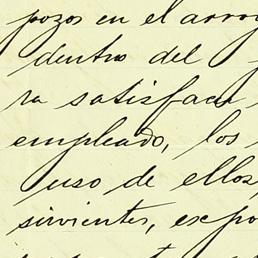 pozos en el arroy
dentro del
ra satisfacer
empleado, los
uso de ellos,
sirvientes, expo